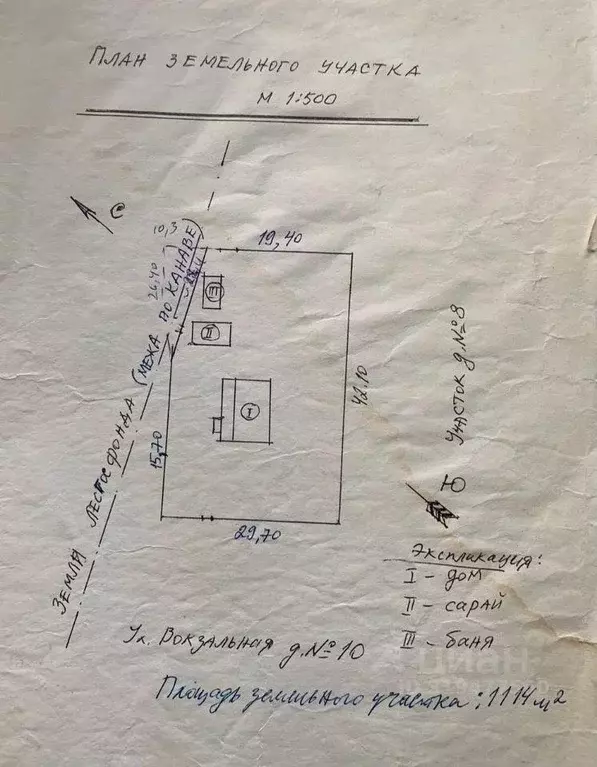 ПЛАН ЗЕМЕЛЬНОГО УЧАСТКА
М 1:500
С
10,3
19,40
26,40
ЗЕМЛЯ ЛЕСГОСФОНДА (МЕЖА ПО КАНАВЕ)
III
II
I
42.10
15,70
29,70
УЧАСТОК д.№8
Ю
Экспликация:
I - дом
II - сарай
III - баня
Ул. Вокзальная д.№10
Площадь земельного участка: 1114 м2
циан